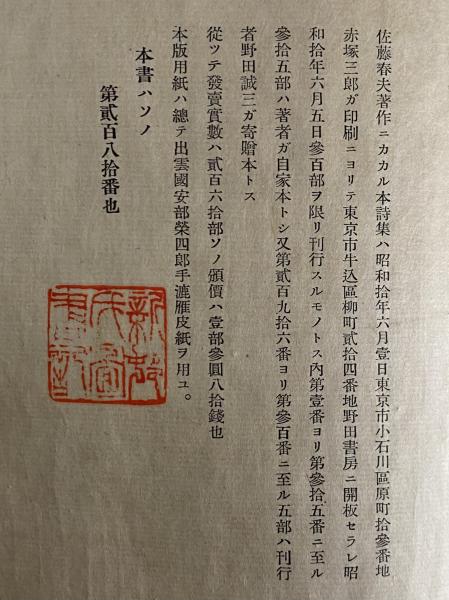 佐藤春夫著作ニカカル本詩集ハ昭和拾年六月壹日東京市小石川區原町拾參番地
赤塚三郎ガ印刷ニヨリテ東京市牛込區柳町貳拾四番地野田書房ニ開板セラレ昭
和拾年六月五日參百部ヲ限リ刊行スルモノトス內第壹番ヨリ第參拾五番ニ至ル
參拾五部ハ著者ガ自家本トシ又第貳百九拾六番ヨリ第參百番ニ至ル五部ハ刊行
者野田誠三ガ寄贈本トス
從ツテ發賣實數ハ貳百六拾部ソノ頒價ハ壹部參圓八拾錢也
本版用紙ハ總テ出雲國安部榮四郎手漉雁皮紙ヲ用ユ。
本書ハソノ
第貳百八拾番也